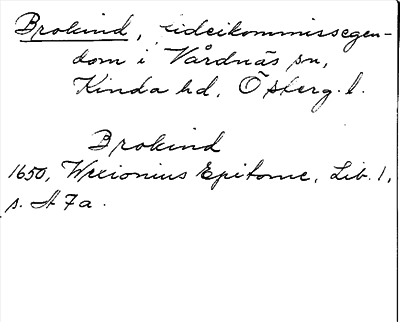 Brokind, fideikommissegen-
dom i Vårdnäs sn,
Kinda hd, Österg. l.
Brokind
1650, Wexionius Epitome, Lib. 1,
s. A 7a.